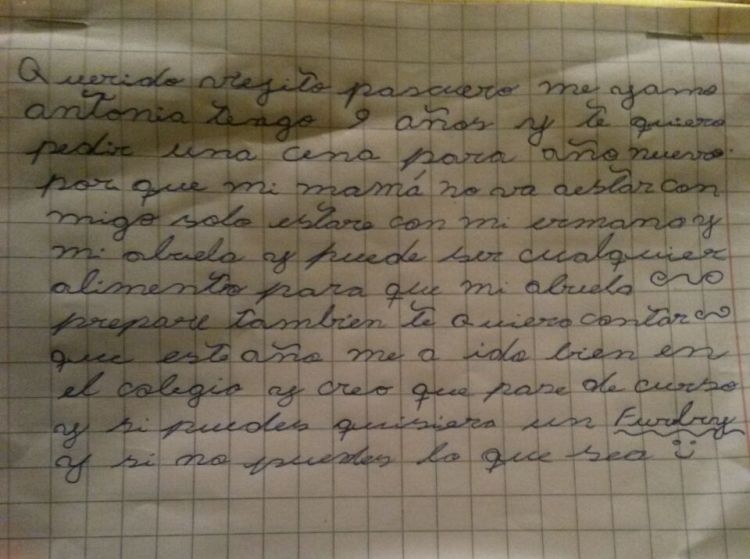 Querido viejito pascuero me yamo
antonia tengo 9 años y te quiero
pedir una cena para año nuevo
por que mi mamá no va aestar con
migo solo estare con mi ermano y
mi abuela y puede ser cualquier
alimento para que mi abuela
prepare tambien te quiero contar
que este año me a ido bien en
el colegio y creo que pase de curso
y si puedes quisiera un Furbry
y si no puedes lo que sea